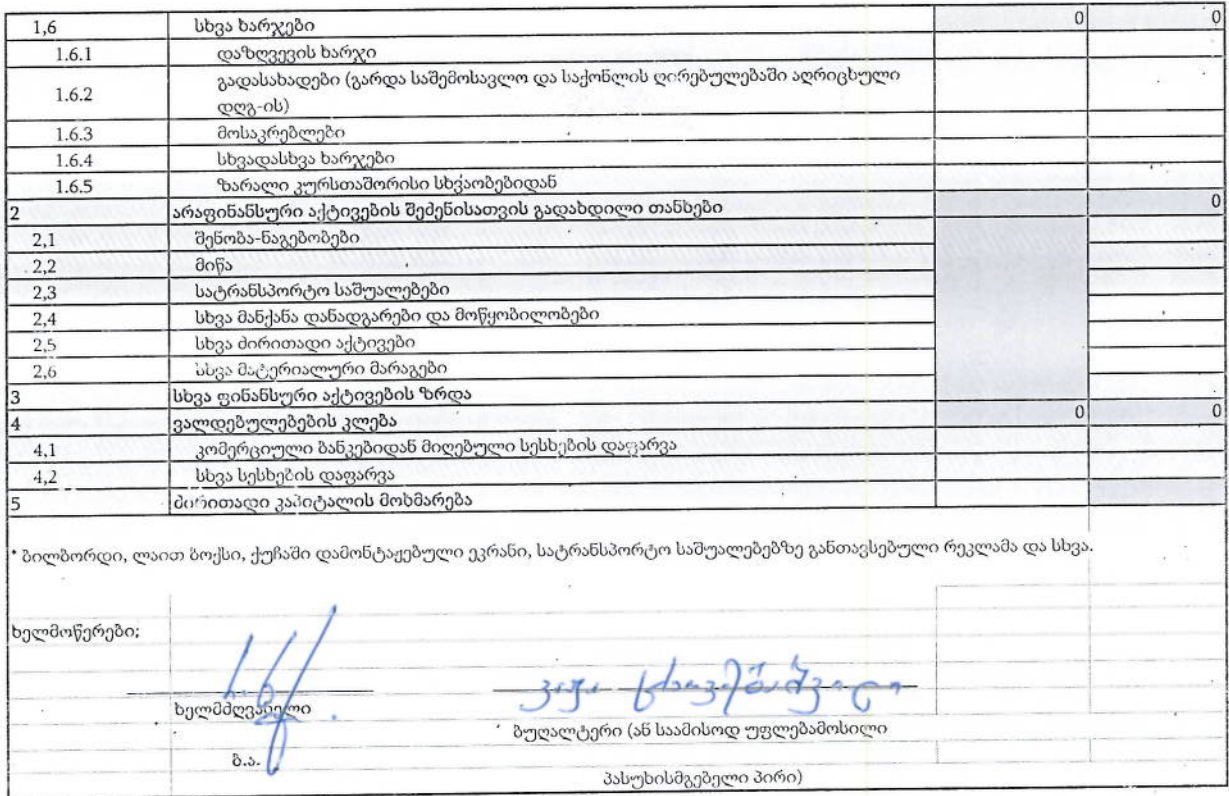 1,6 სხვა ხარჯები 0 0
1.6.1 დაზღვევის ხარჯი
1.6.2 გადასახადები (გარდა საშემოსავლო და საქონლის ღირებულებაში აღრიცხული
დღგ-ის)
1.6.3 მოსაკრებლები
1.6.4 სხვადასხვა ხარჯები
1.6.5 ზარალი კურსთაშორისი სხვაობებიდან
2 არაფინანსური აქტივების შეძენისათვის გადახდილი თანხები 0
2,1 შენობა-ნაგებობები
2,2 მიწა
2,3 სატრანსპორტო საშუალებები
2,4 სხვა მანქანა დანადგარები და მოწყობილობები
2,5 სხვა ძირითადი აქტივები
2,6 სხვა მატერიალური მარაგები
3 სხვა ფინანსური აქტივების ზრდა
4 ვალდებულებების კლება 0 0
4,1 კომერციული ბანკებიდან მიღებული სესხების დაფარვა
4,2 სხვა სესხების დაფარვა
5 ძირითადი კაპიტალის მოხმარება
* ბილბორდი, ლაით ბოქსი, ქუჩაში დამონტაჟებული ეკრანი, სატრანსპორტო საშუალებებზე განთავსებული რეკლამა და სხვა.
ხელმოწერები;
ხელმძღვანელი
ბუღალტერი (ან საამისოდ უფლებამოსილი
ბ.ა.
პასუხისმგებელი პირი)